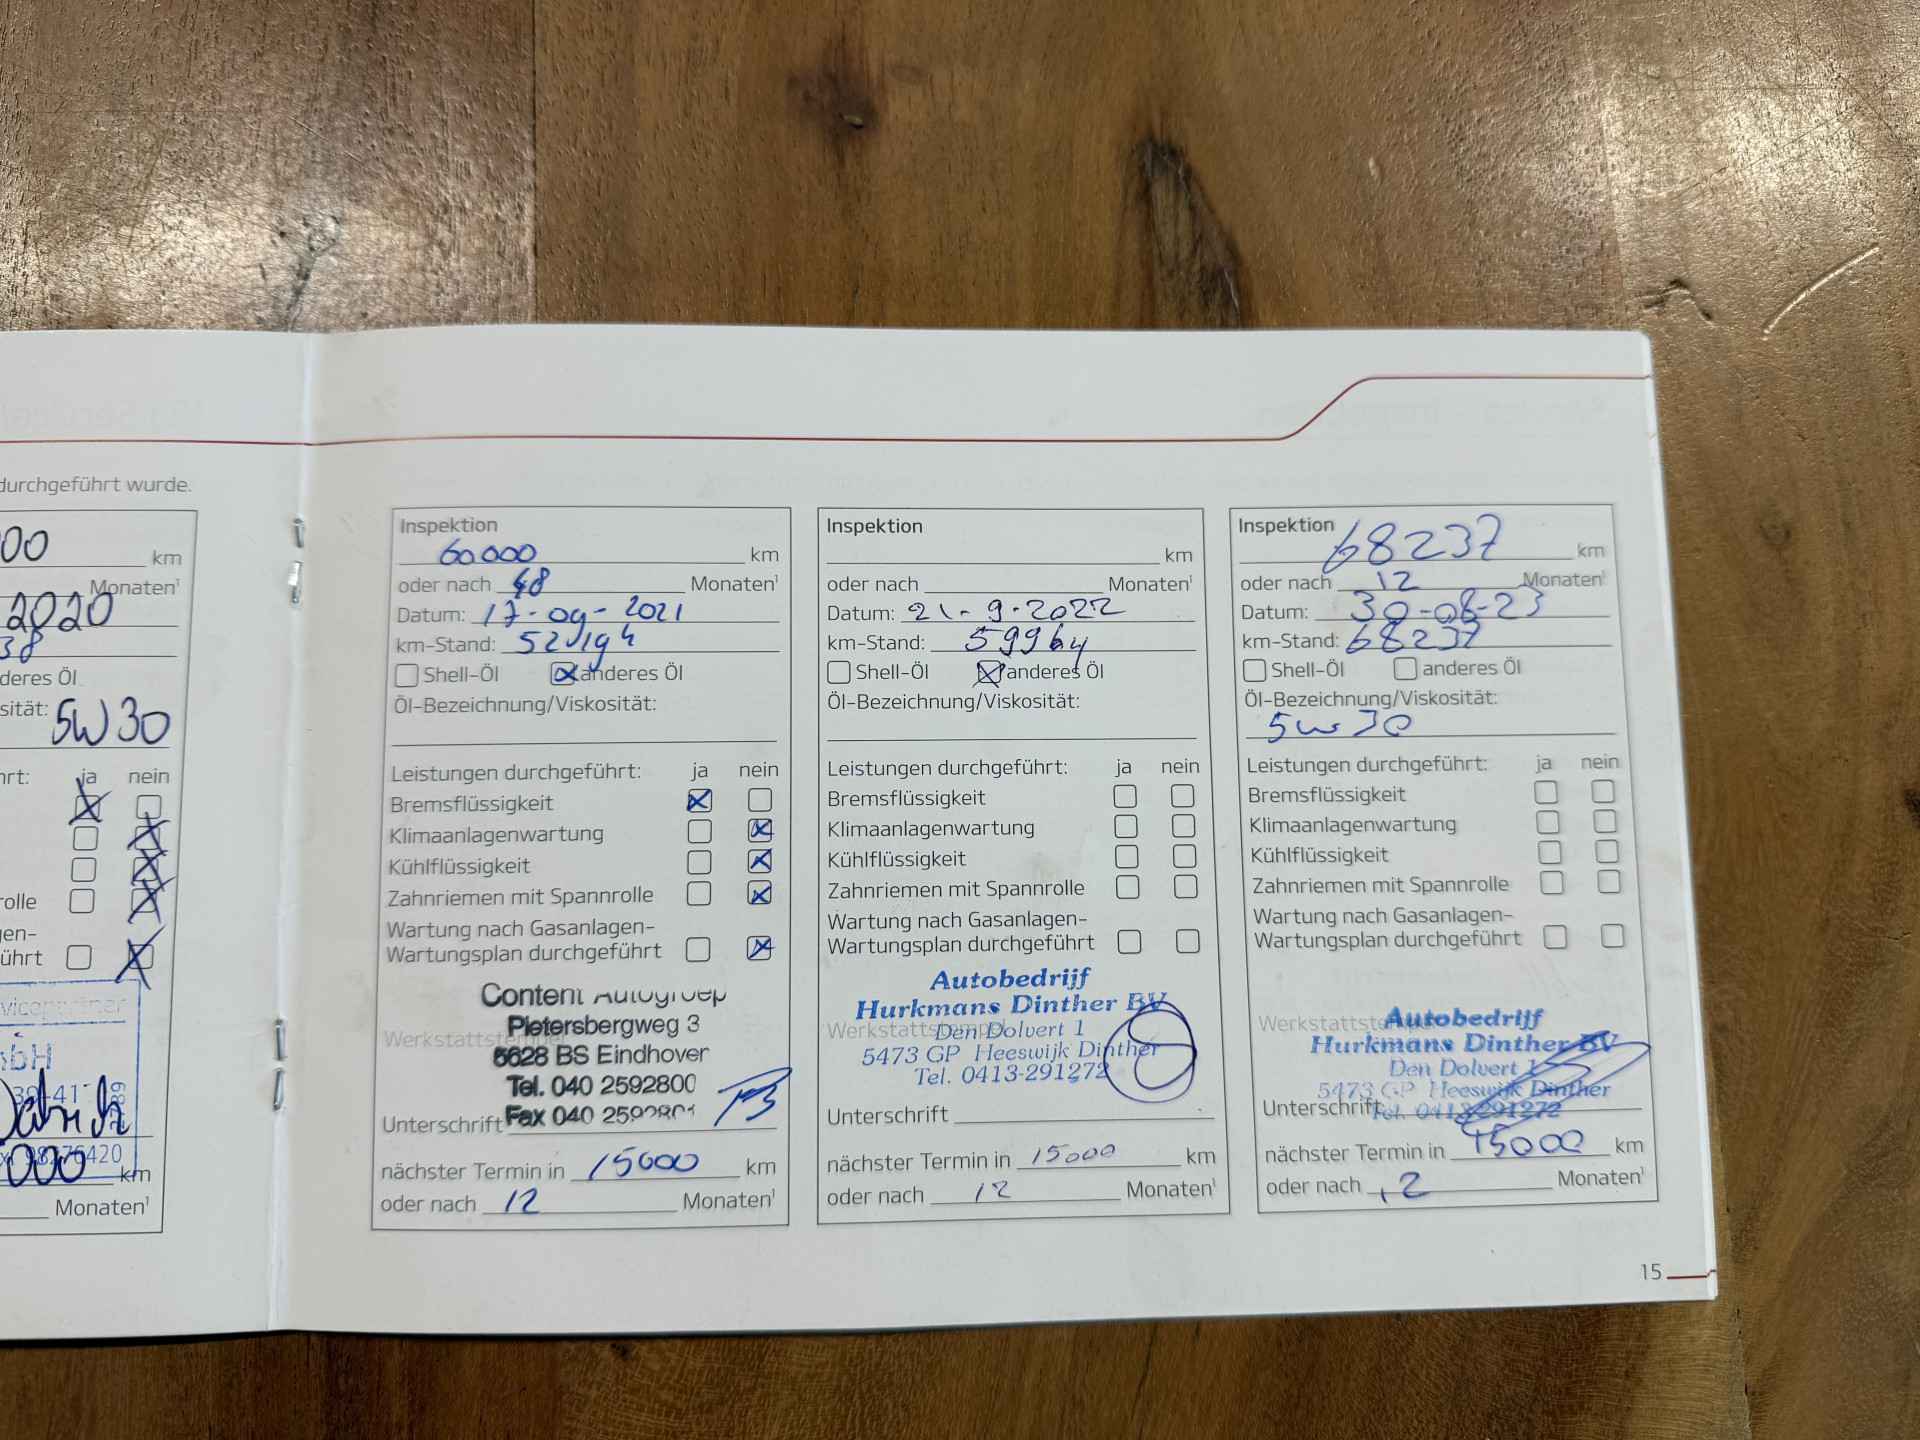 durchgeführt wurde.
00 km
Monaten¹
2020
38
deres Öl
sität: 5W30
hrt: ja nein
rolle
en-
ührt
bH
km
Monaten¹
Inspektion
60000 km
oder nach 48 Monaten¹
Datum: 17-09-2021
km-Stand:
Shell-Öl anderes Öl
Öl-Bezeichnung/Viskosität:
Leistungen durchgeführt: ja nein
Bremsflüssigkeit
Klimaanlagenwartung
Kühlflüssigkeit
Zahnriemen mit Spannrolle
Wartung nach Gasanlagen-
Wartungsplan durchgeführt
Content Autogroep
Pietersbergweg 3
Werkstattstempel
5628 BS Eindhoven
Tel. 040 2592800
Fax 040
Unterschrift
nächster Termin in 15000 km
oder nach 12 Monaten¹
Inspektion
km
oder nach Monaten¹
Datum: 21-9-2022
km-Stand: 59964
Shell-Öl anderes Öl
Öl-Bezeichnung/Viskosität:
Leistungen durchgeführt: ja nein
Bremsflüssigkeit
Klimaanlagenwartung
Kühlflüssigkeit
Zahnriemen mit Spannrolle
Wartung nach Gasanlagen-
Wartungsplan durchgeführt
Autobedrijf
Hurkmans Dinther BV
Werkstattstempel
Den Dolvert 1
5473 GP Heeswijk Dinther
Tel. 0413-291272
Unterschrift
nächster Termin in 15000 km
oder nach 12 Monaten¹
Inspektion 68237 km
oder nach 12 Monaten¹
Datum: 30-08-23
km-Stand: 68237
Shell-Öl anderes Öl
Öl-Bezeichnung/Viskosität:
5w30
Leistungen durchgeführt: ja nein
Bremsflüssigkeit
Klimaanlagenwartung
Kühlflüssigkeit
Zahnriemen mit Spannrolle
Wartung nach Gasanlagen-
Wartungsplan durchgeführt
Werkstattstempel
Autobedrijf
Hurkmans Dinther BV
Den Dolvert 1
5473 GP Heeswijk Dinther
Tel. 0413-291272
Unterschrift
nächster Termin in 15000 km
oder nach 12 Monaten¹
15